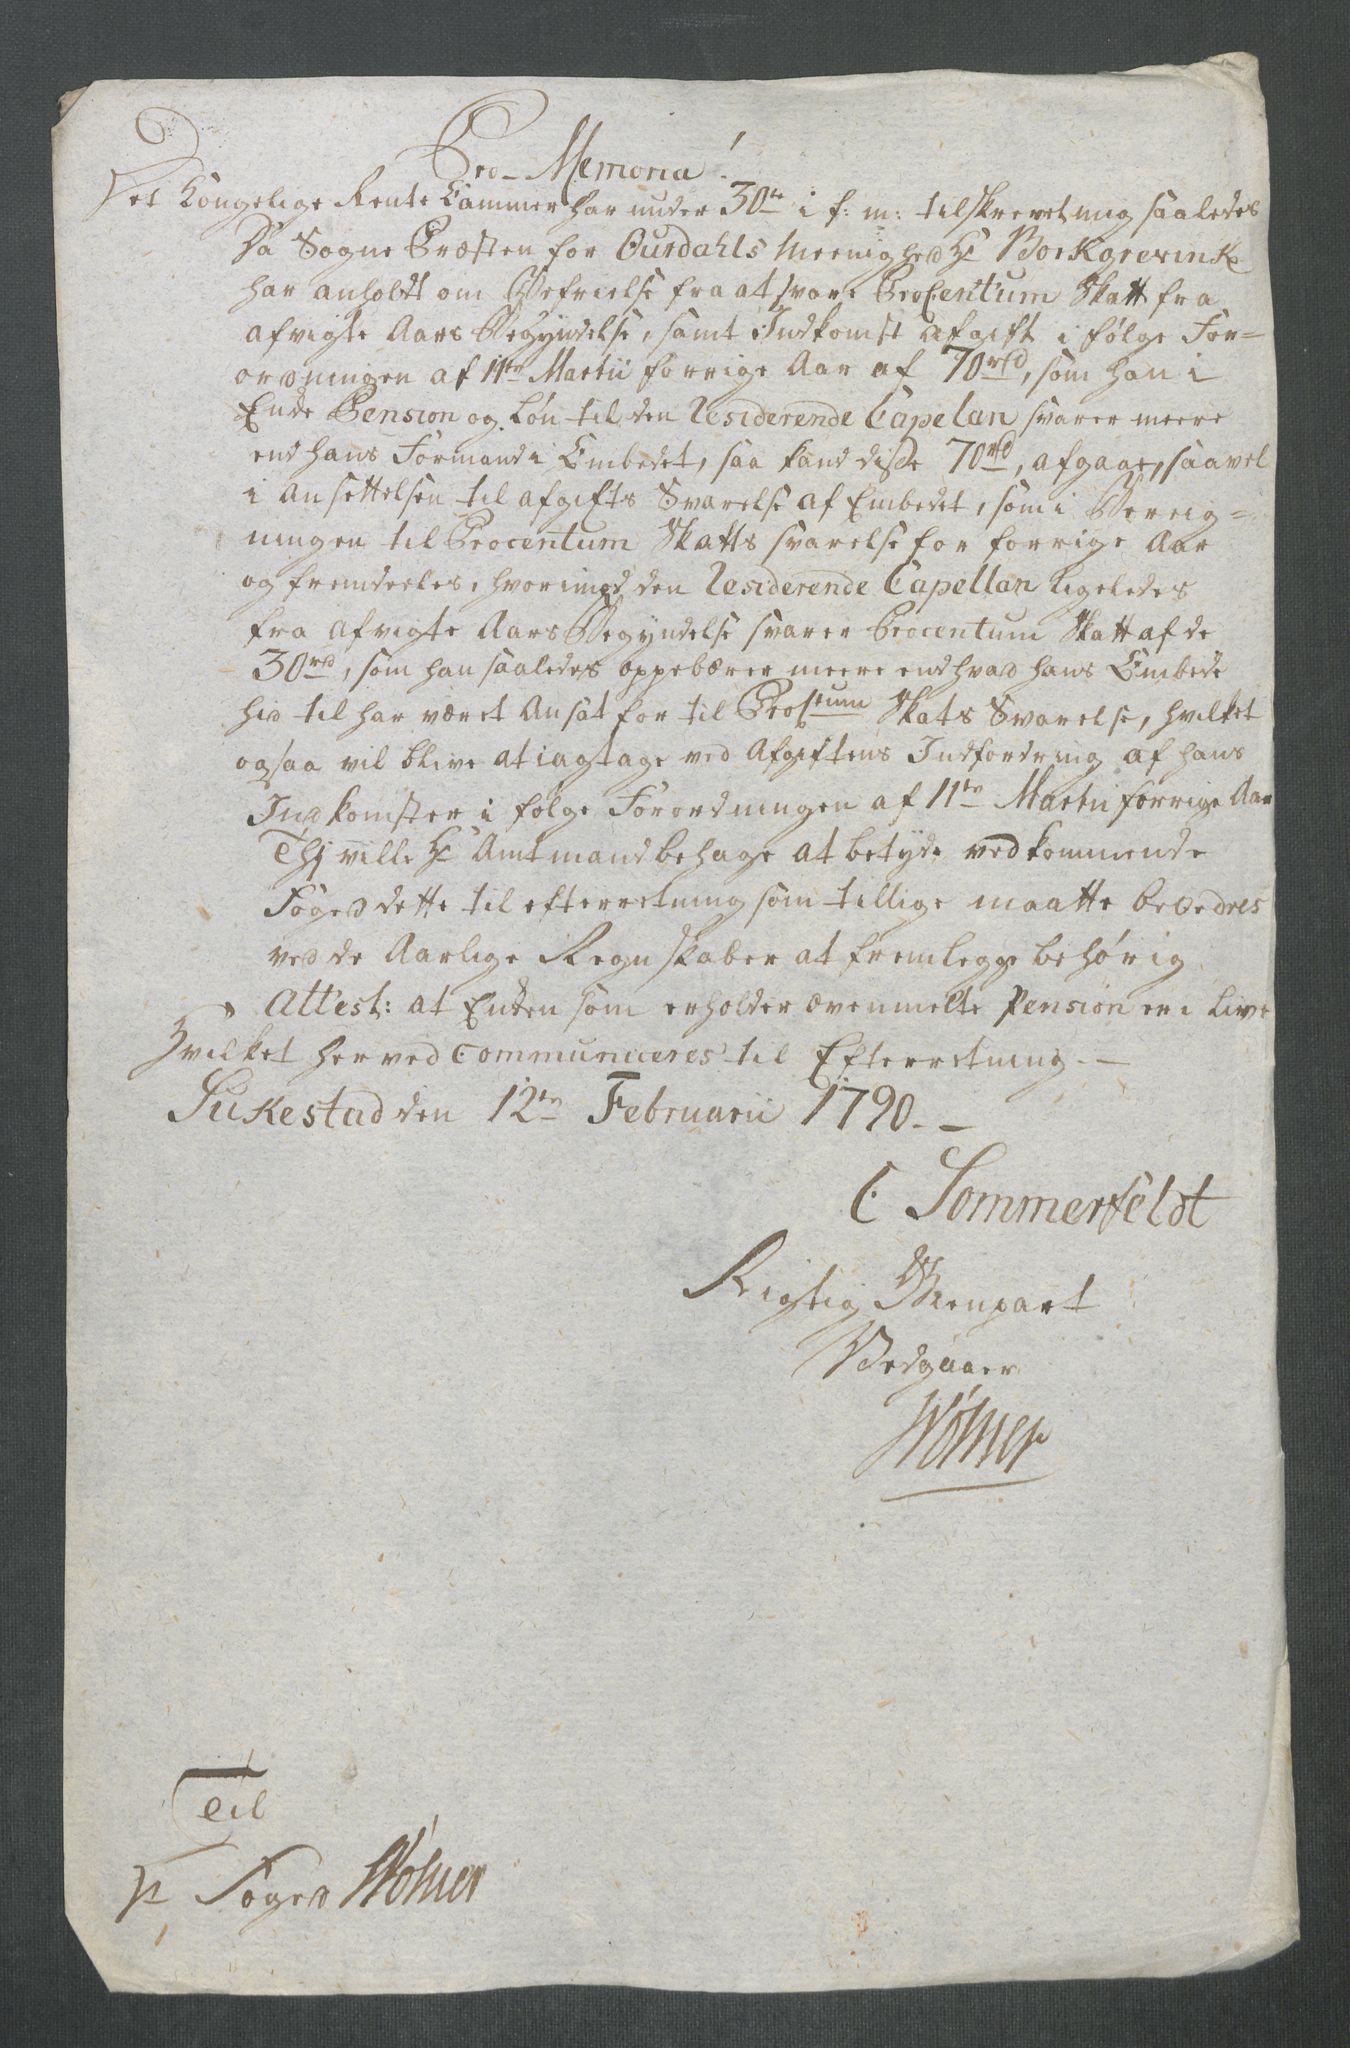 Pro Memoria!
Det Kongelige Rente Cammer har under 30te i f: m: tilskrevet mig saaledes
Da Sogne Præsten for Ourdahls Meenighed Hr Borkgrevink
har anholdt om Befrielse fra at svare ProCentum Skatt fra
afvigte Aars Begyndelse, samt Indkomst Afgift i følge For-
ordningen af 11te Martii forrige Aar af 70rd, som han i
Enke Pension og Løn til den Residerende Capelan svarer meere
end hans Formand i Embedet, saa kand disse 70rd, afgaae, saavel
i Ansettelsen til afgifts Svarelse af Embedet, som i Bereig-
ningen til Procentum Skatts svarelse for forrige Aar
og fremdeeles, hvorimod den Residerende Capellan ligeledes
fra afvigte Aars Begyndelse svarer Procentum Skatt af de
30rd, som han saaledes oppebærer meere end hvad hans Embede
hid til har været Ansat for til Prosentum Skats Svarelse, hvilket
ogsaa vil blive at iagtage ved Afgiftens Indfordring af hans
Indkomster i følge Forordningen af 11te Martii forrige Aar
Thj ville Hr Amtmand behage at betyde vedkommende
Foged dette til efterretning som tillige maatte beordres
ved de Aarlige Regnskaber at fremlegge behørig
Attest: at Enken som erholder ovenmelte Pension er i Live
Hvilket herved Communiceres til Efterretning. —
Sukestad den 12te Februarii 1790. —
C Sommerfeldt
Rigtig Gienpart
Vedgaaer
Wølner
Til
Hr Foged Wølner